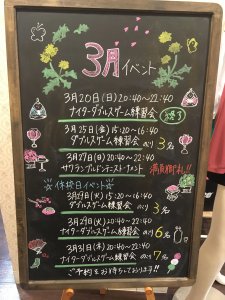 3月イベント
3月20日(日)20:40〜22:40
ナイターダブルスゲーム練習会 終了
3月25日(金)15:20〜16:40
ダブルスゲーム練習会 のこり3名
3月27日(日)20:40〜22:40
満員御礼!!
☆休校日イベント☆
3月29日(火)15:20〜16:40
ダブルスゲーム練習会 のこり3名
3月29日(火)20:40〜22:40
ナイターダブルスゲーム練習会 のこり6名
3月31日(木)20:40〜22:40
ナイターダブルスゲーム練習会 のこり7名
ご予約をお待ちしております!!